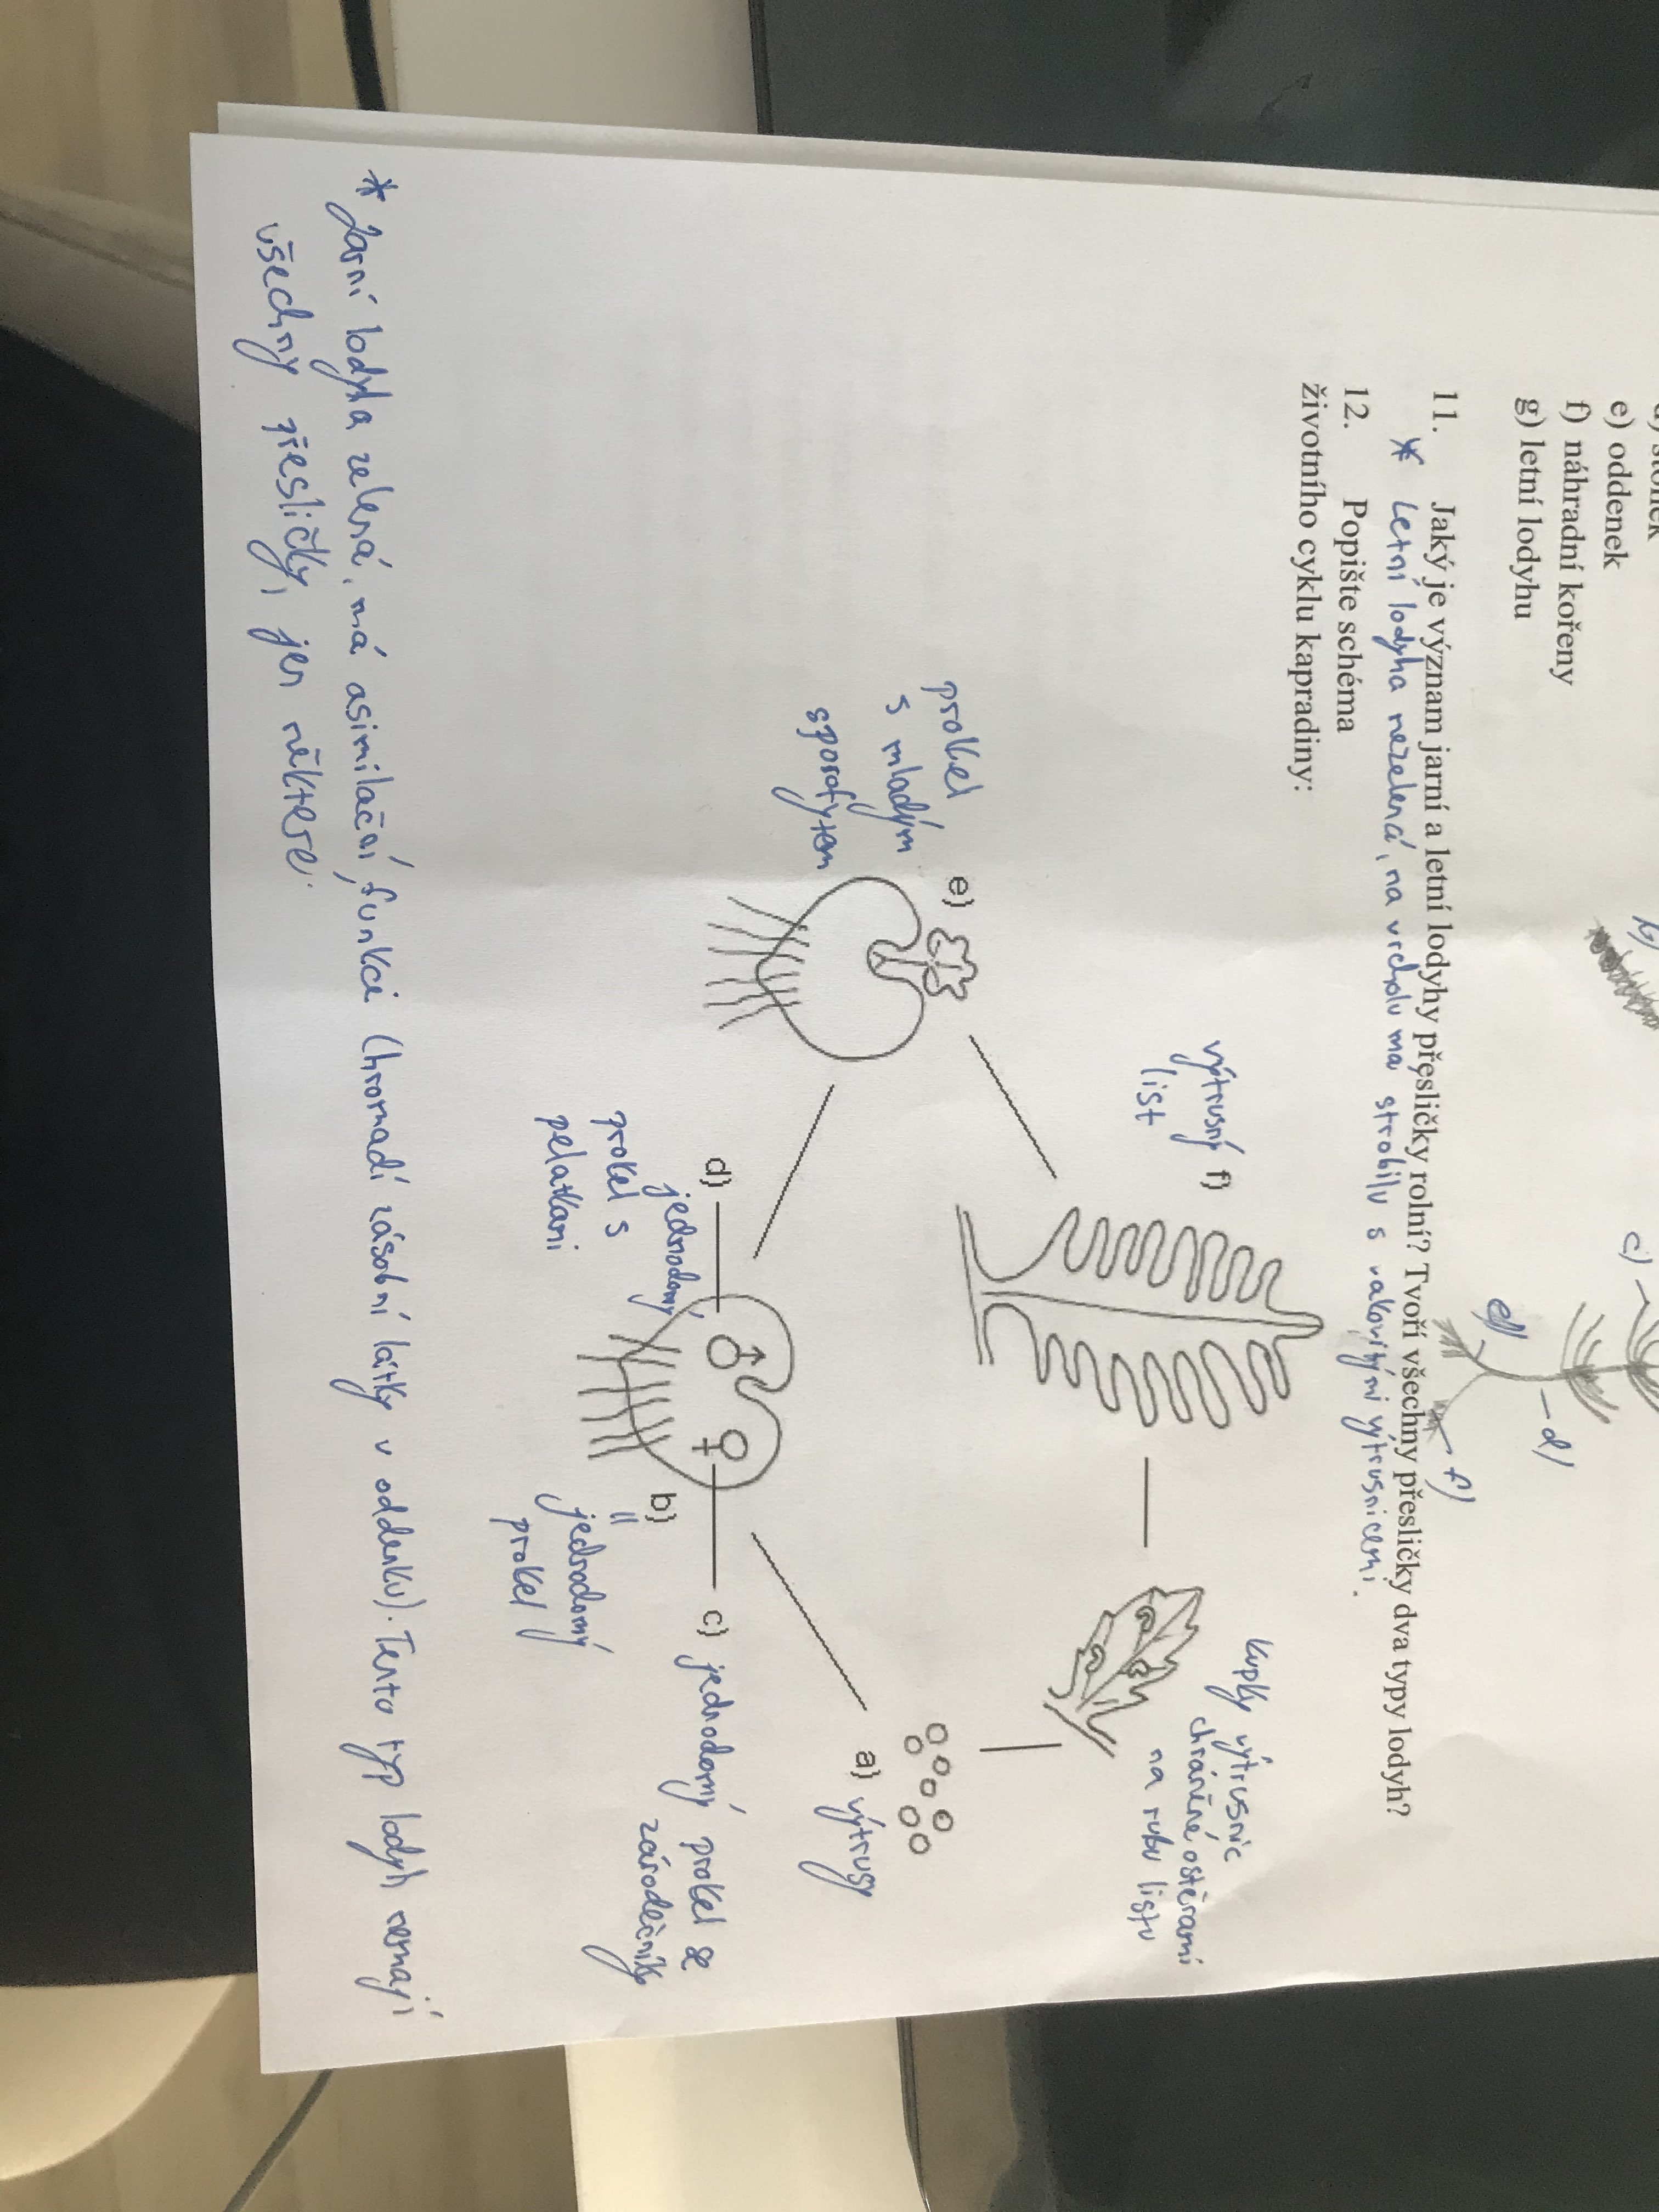 d) stonek
e) oddenek
f) náhradní kořeny
g) letní lodyhu
b)
c)
d)
e)
f)
11. Jaký je význam jarní a letní lodyhy přesličky rolní? Tvoří všechny přesličky dva typy lodyh?
* Letní lodyha nezelená, na vrcholu má strobilu s vakovitými výtrusnicemi.
12. Popište schéma
životního cyklu kapradiny:
výtrusný f)
list
kupky výtrusnic
chráněné ostěrami
na rubu listu
prokel e)
s mladým
sporofytem
a) výtrusy
d)
jednodomý
prokel s
pelatkami
c) jednodomý prokel se
zárodečníky
b)
=
jednodomý
prokel
* Jarní lodyha zelená, má asimilační funkci (hromadí zásobní látky v oddenku). Tento typ lodyh nemají
všechny přesličky, jen některé.